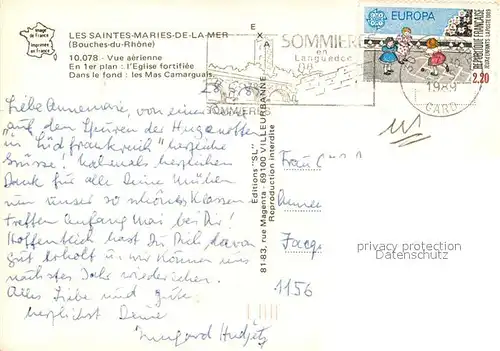 Image de France
Imprimée en France
LES SAINTES-MARIES-DE-LA-MER
(Bouches-du-Rhône)
10.078 - Vue aérienne
En 1er plan : l'Eglise fortifiée
Dans le fond : les Mas Camarguais
EXA
SOMMIERES
en
Languedoc
SOMMIERES
EUROPA
REPUBLIQUE FRANÇAISE
2,20
1989
GARD
Liebe Annemarie, von einer
"auf den Spuren der Hugenotten
in Südfrankreich" herzliche
Grüsse! Nochmals herzlichen
Dank für alle Deine Mühen
um unser so schönes Klassen-
treffen Anfang Mai bei Dir!
Hoffentlich hast Du Dich davon
gut erholt u. wir können uns
nächstes Jahr wiedersehen.
Alles Liebe und Gute
herzlichst Deine
Irmgard
Editions "SL"
81-83, rue Magenta - 69100 VILLEURBANNE
Reproduction interdite
Frau
Jaege
1156
privacy protection
Datenschutz